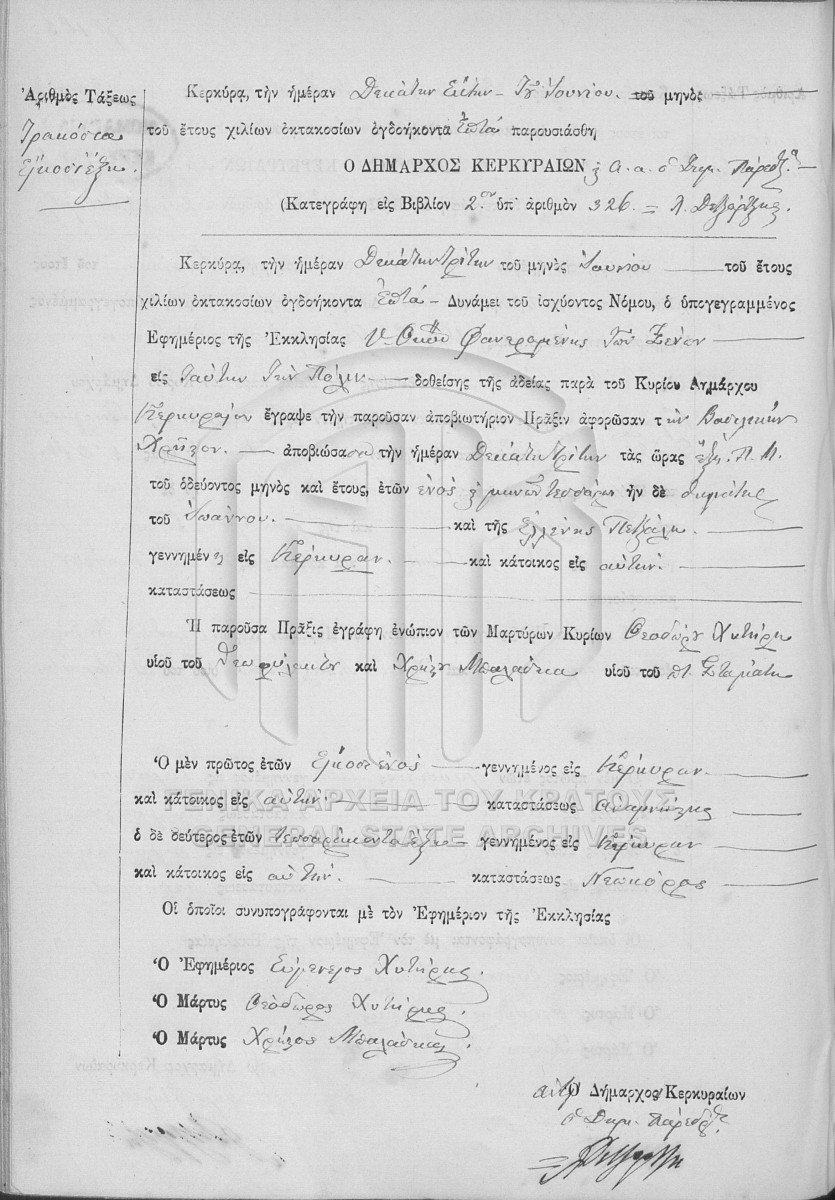 Ἀριθμὸς Τάξεως
Τριακόσια
Εἴκοσι ἕξη.
Κερκύρᾳ, τὴν ἡμέραν Δεκάτην Ἕκτην Ἰουνίου. τοῦ μηνὸς
τοῦ ἔτους χιλίων ὀκτακοσίων ὀγδοήκοντα Ἑπτὰ παρουσιάσθη
Ὁ ΔΗΜΑΡΧΟΣ ΚΕΡΚΥΡΑΙΩΝ ὁ Δημ. Πάρεδρ.
(Κατεγράφη εἰς Βιβλίον 2ον ὑπ᾽ ἀριθμὸν 326
Κερκύρᾳ, τὴν ἡμέραν Δεκάτην Τρίτην τοῦ μηνὸς Ἰουνίου τοῦ ἔτους
χιλίων ὀκτακοσίων ὀγδοήκοντα Ἑπτὰ Δυνάμει τοῦ ἰσχύοντος Νόμου, ὁ ὑπογεγραμμένος
Ἐφημέριος τῆς Ἐκκλησίας Φανερωμένης τῶν Ξένων
εἰς ταύτην τὴν Πόλιν δοθείσης τῆς ἀδείας παρὰ τοῦ Κυρίου Δημάρχου
Κερκυραίων ἔγραψε τὴν παροῦσαν ἀποβιωτήριον Πρᾶξιν ἀφορῶσαν τὴν Βασιλικὴν
ἀποβιώσασα τὴν ἡμέραν Δεκάτην Τρίτην τὰς ὥρας ἕξη Π.Μ.
τοῦ ὁδεύοντος μηνὸς καὶ ἔτους, ἐτῶν ἑνὸς μηνῶν τεσσάρων ἦν δὲ
τοῦ Ἰωάννου. καὶ τῆς Ἑλλένης
γεννημένη εἰς Κέρκυραν. καὶ κάτοικος εἰς αὐτήν.
καταστάσεως
Ἡ παροῦσα Πρᾶξις ἐγράφη ἐνώπιον τῶν Μαρτύρων Κυρίων Θεοδώρου Χυτήρη
υἱοῦ τοῦ Θεοφυλάκτου καὶ Χρήστου Μπαλάσκα υἱοῦ τοῦ Σταμάτη
Ὁ μὲν πρῶτος ἐτῶν Εἴκοσι ἑνὸς γεννημένος εἰς Κέρκυραν.
καὶ κάτοικος εἰς αὐτήν. καταστάσεως ἀναγνώστης
ὁ δὲ δεύτερος ἐτῶν τεσσαράκοντα ἕξη γεννημένος εἰς Κέρκυραν
καὶ κάτοικος εἰς αὐτήν. καταστάσεως Νεωκόρος
Οἱ ὁποῖοι συνυπογράφονται μὲ τὸν Ἐφημέριον τῆς Ἐκκλησίας
Ὁ Ἐφημέριος Εὐμένειος Χυτήρης.
Ὁ Μάρτυς Θεόδωρος Χυτήρης.
Ὁ Μάρτυς Χρῆστος Μπαλάσκας
Ὁ Δήμαρχος Κερκυραίων
ὁ Δημ. Πάρεδρος
ΓΕΝΙΚΑ ΑΡΧΕΙΑ ΤΟΥ ΚΡΑΤΟΥΣ
GENERAL STATE ARCHIVES